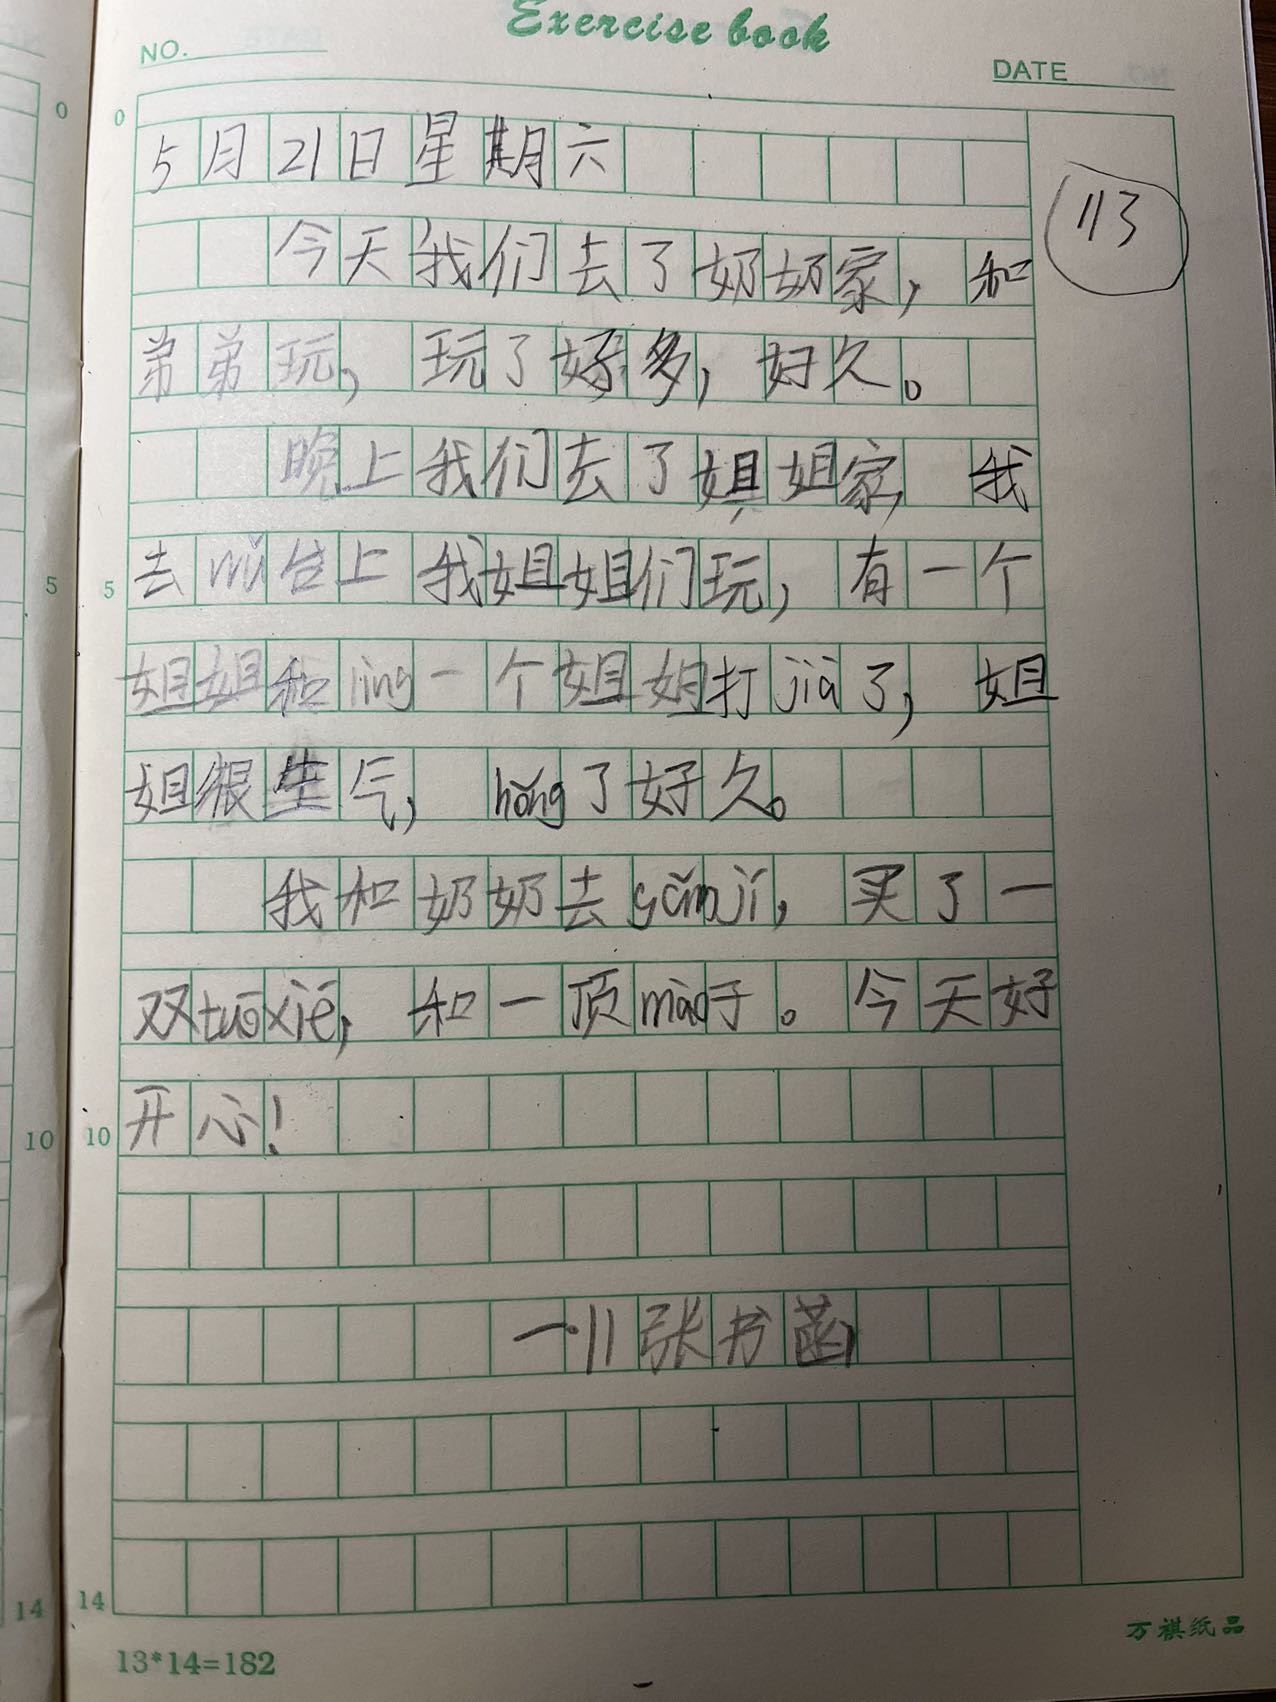 Exercise book
NO.
DATE
0
0
5月21日星期六
113
今天我们去了奶奶家，和
弟弟玩，玩了好多，好久。
晚上我们去了姐姐家，我
5
5
去 台上我姐姐们玩，有一个
姐姐和ling一个姐姐打jià了，姐
姐很生气，hǒng了好久。
我和奶奶去gǎnjí，买了一
双tuōxié，和一顶mào子。今天好
10
10
开心！
一.11张书菡
14
14
万祺纸品
13*14=182